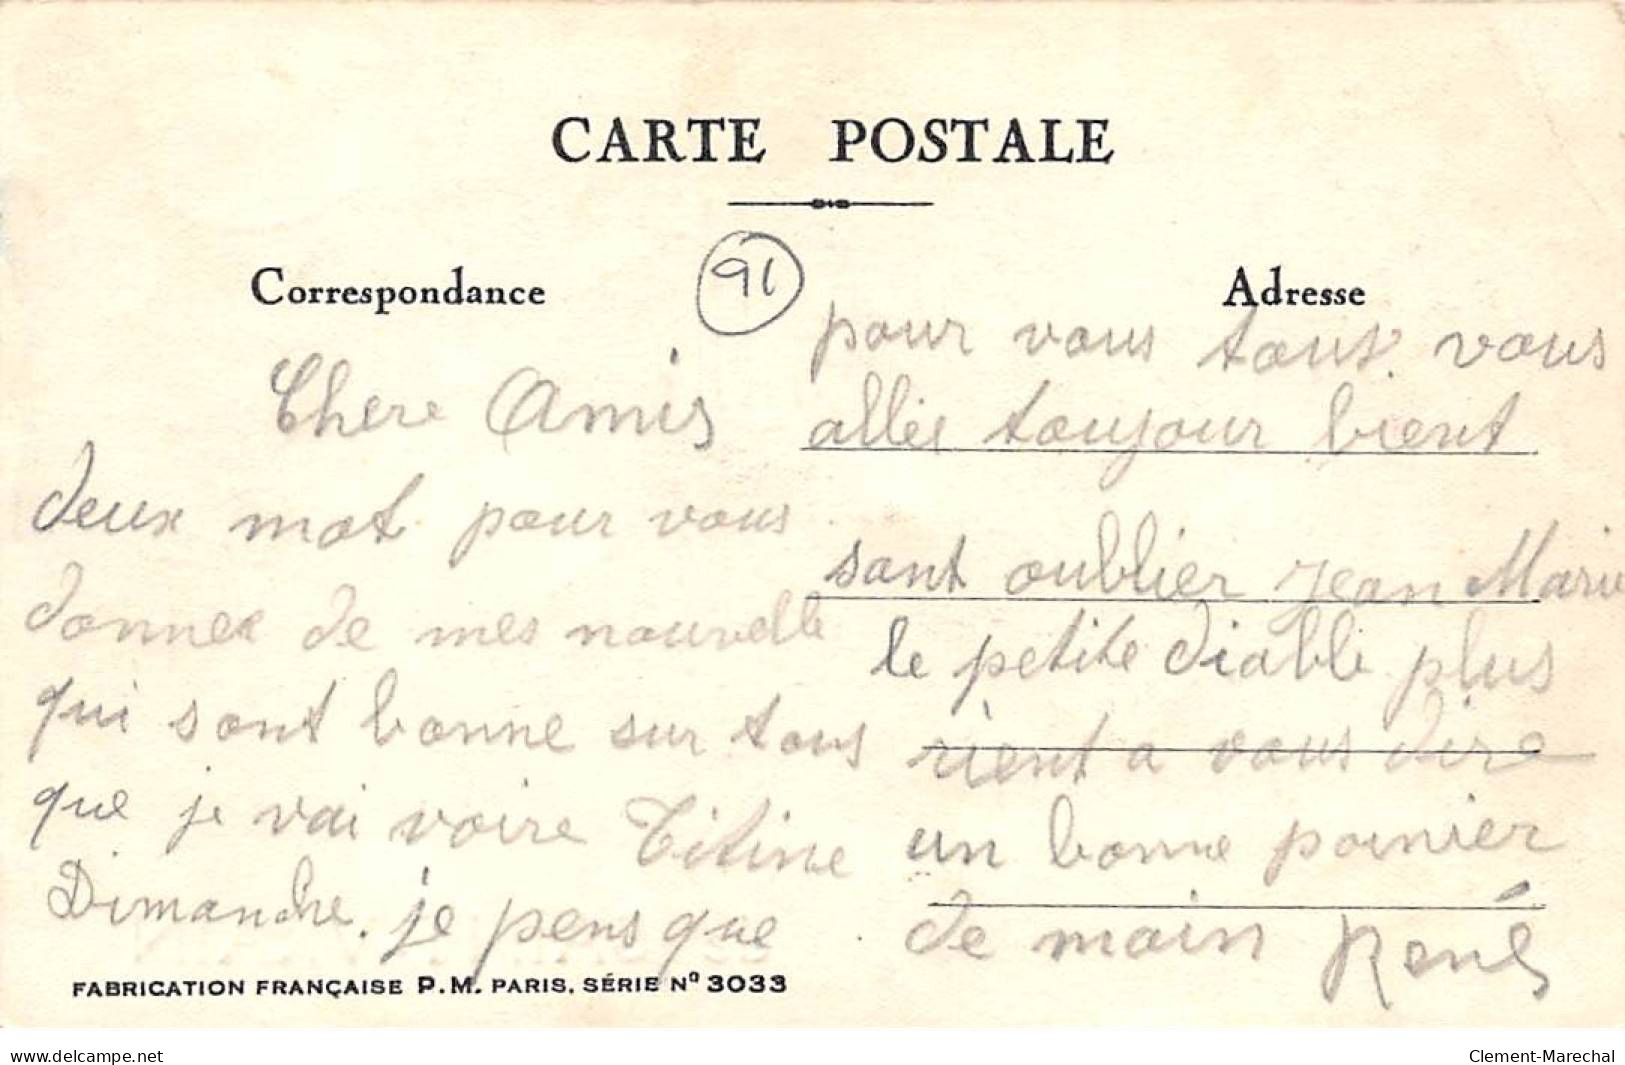 CARTE POSTALE
Correspondance
91
Adresse
Chere Amis
deux mot pour vous
donner de mes nouvelle
qui sont bonne sur tous
que je vai voire Titine
Dimanche. je pens que
FABRICATION FRANÇAISE P.M. PARIS. SÉRIE Nº 3033
pour vous tous vous
allie toujour bient
sant oublier Jean Marie
le petite diable plus
rient a vous dire
un bonne poinier
de main René
delcampe.net
Clement-Marechal